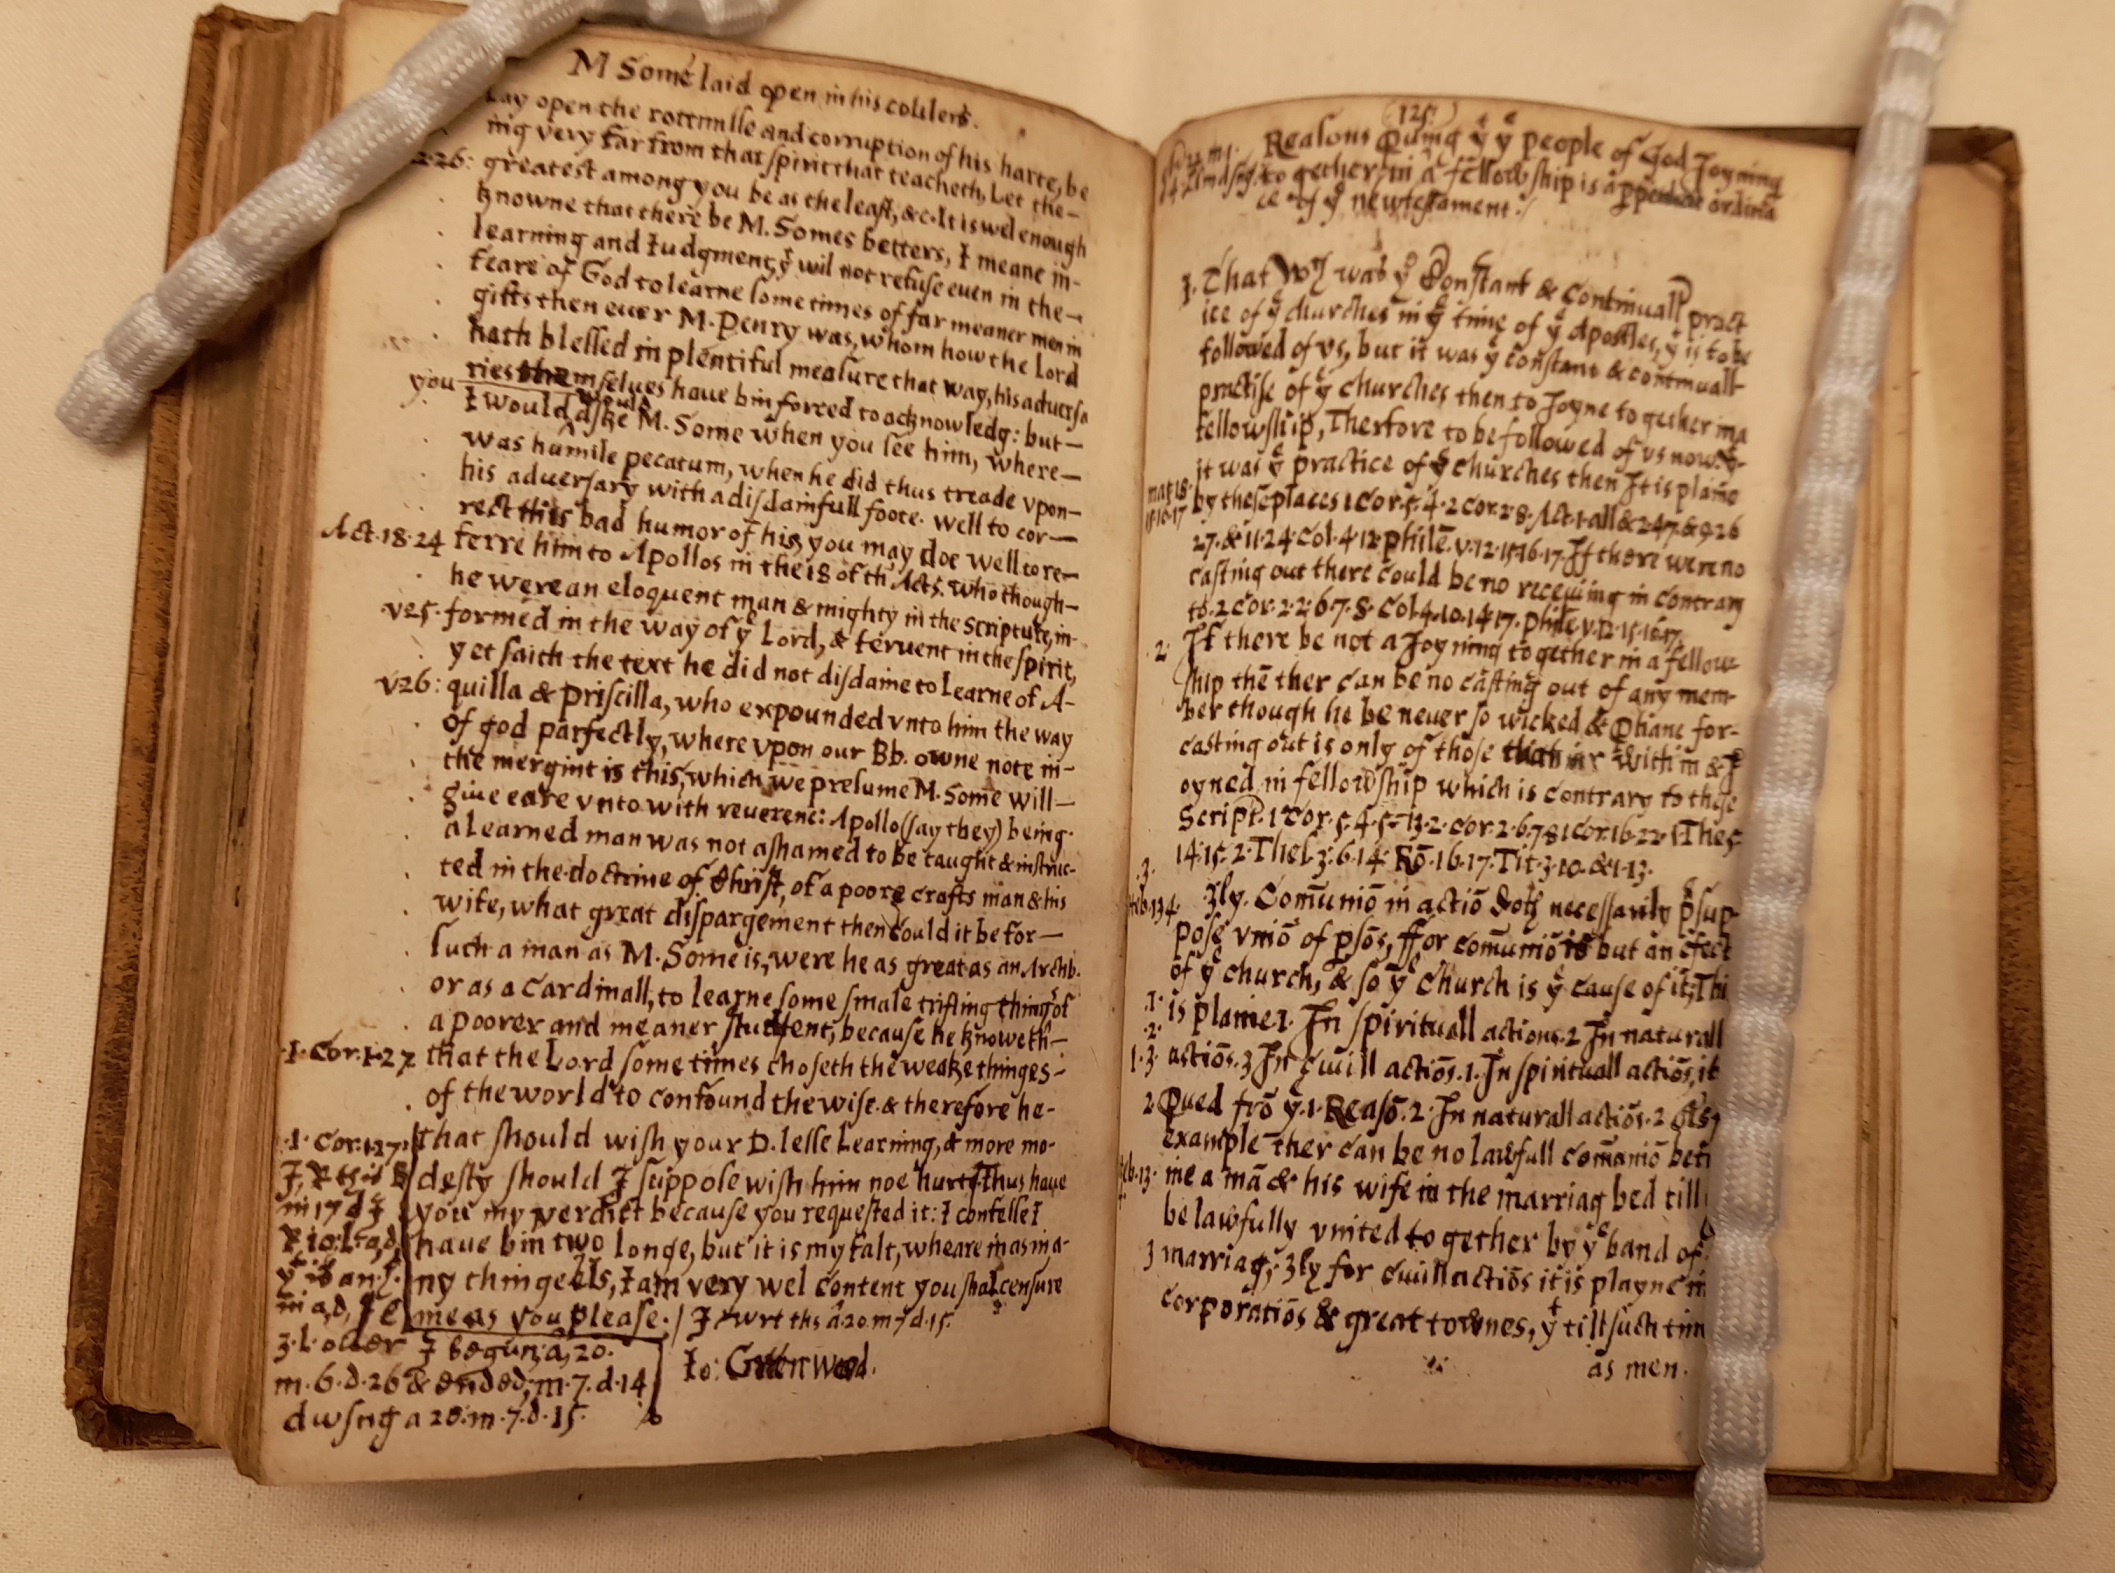 M Some laid open in his coullers.
Lay open the rottennesse and corruption of his harte, be
ing very far from that spirit that teacheth, Let the—
22·26: greatest among you be as the least, &c. It is wel enough
knowne that there be M. Somes betters, I meane in-
learning and Iudgment, yͭ wil not refuse even in the—
feare of God to learne some times of far meaner men in
gifts then ever M. Penry was, whom how the Lord
hath blessed in plentiful measure that way, his adversa
ries themselves have bin forced to acknowledg: but—
you I would aske M. Some when you see him, where—
was humile pecatum, when he did thus treade vpon—
his adversary with a disdainfull foote. Well to cor—
rect this bad humor of his you may doe well to re—
Act·18·24 ferre him to Apollos in the 18 of th Acts. who though—
he were an eloquent man & mighty in the Scripture, in-
v25· formed in the way of yͤ Lord, & fervent in the spirit,
yet saith the text he did not disdaine to Learne of A-
v26: quilla & Priscilla, who expounded vnto him the way
of god parfectly, where vpon our Bb. owne note in-
the mergint is this, which we presume M. Some will—
give eare vnto with reverenc: Apollo (say they) being·
a Learned man was not ashamed to be taught & instruc-
ted in the doctrine of Christ, of a poore crafts man & his
wife, what great dispargement then could it be for—
such a man as M. Some is, were he as great as an Archb.
or as a Cardinall, to learne some smale trifling thing of
a poorer and meaner student, because he knoweth—
·I· Cor·I·27 that the Lord some times choseth the weake thinges-
of the world to confound the wise. & therefore he-
·I· Cor·1·27· that should wish your D. lesse Learning, & more mo-
desty should I suppose wish him noe hurt, Thus have
you my verdict because you requested it: I confesse I
have bin two longe, but it is my falt, wheare in as in a-
ny thinge els, I am very wel content you shal censure
me as you please. / I wrt ths a·20·m·7·d·15·
3·l·over I begun, a, 20·
m·6·d·26 & ended, m·7·d·14
d wsng a 20·m·7·d·15·
Io: Grenwood.
(125)
Reasons yͭ yͤ people of God Joyning
to gether in a fellowship is a ordina
ce of yͤ new testament·/
1. That wᶜʰ was yͤ Constant & continuall pract
ice of yͤ churches in yͤ time of yͤ Apostles, yͭ is to be
followed of vs, but it was yͤ constant & continuall
practise of yͤ churches then to Joyne to gether in a
fellowship, Therfore to be followed of vs now. yͭ
it was yͤ practice of yͤ churches then It is plaine
mat 18· by these places 1 Cor·5·4·2 cor·2·8· Act·1·all & 2·47·&9·26
15·16·17 27·& 11·24·Col·4·12·philē·v·12·15·16·17·If there were no
casting out there could be no receiving in contrary
to·2 cor·2·2·6·7·8· Col 4·10·14·17· phile v·12·15·16·17·
·2· If there be not a Joyning together in a fellow
ship thē ther can be no casting out of any mem-
ber though he be never so wicked & for-
casting out is only of those that ar with in & J
oyned in fellowship which is contrary to these
Script· 1 Cor·5·4·5·13·2·cor·2·6·7·8 1 cor·16·22·1 Thes
14·15·2·Thes·3·6·14· Rō·16·17·Tit·3·10·&1·13·
·3· 3ly. Comūniō in actiō doth necessarily psup
pose vniō of psōs, ffor comūniō is but an efect
of yͤ church, & so yͤ Church is yͤ cause of it, Thi
·1· is plaine 1· In spirituall actions. 2 In naturall
·2·
1·3· actiōs. 3 In civill actiōs. 1. In spirituall actiōs, it
2 frō yͤ·1·Reasō. 2· In naturall actiōs·2
example ther can be no lawfull comūniō betw
ine a mā & his wife in the marriag bed till
be lawfully vnited to gether by yͤ band of
3 marriag, 3ly for civill actiōs it is playne in
corporatiōs & great townes, yͭ till such tim
as men·